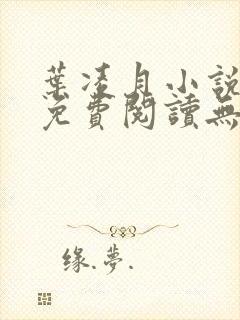 葉凌月小說
免費閱讀無
缘.夢.